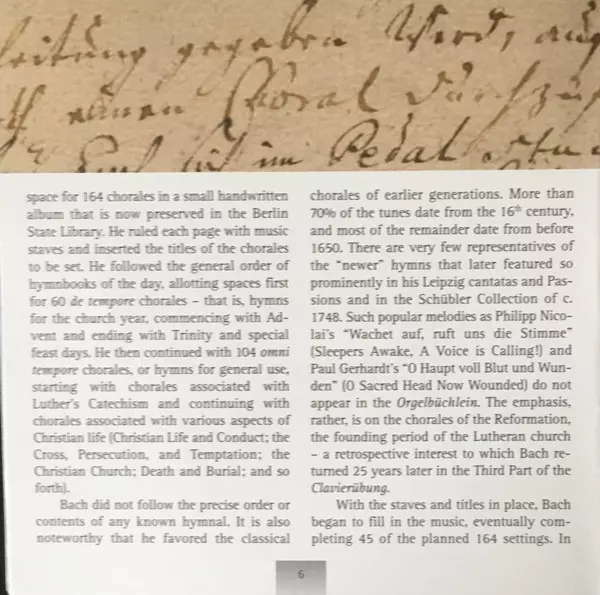 leitung gegeben wird, auf
einen Choral durchzu
sich im Pedal stu
space for 164 chorales in a small handwritten
album that is now preserved in the Berlin
State Library. He ruled each page with music
staves and inserted the titles of the chorales
to be set. He followed the general order of
hymnbooks of the day, allotting spaces first
for 60 de tempore chorales – that is, hymns
for the church year, commencing with Ad-
vent and ending with Trinity and special
feast days. He then continued with 104 omni
tempore chorales, or hymns for general use,
starting with chorales associated with
Luther's Catechism and continuing with
chorales associated with various aspects of
Christian life (Christian Life and Conduct; the
Cross, Persecution, and Temptation; the
Christian Church; Death and Burial; and so
forth).
Bach did not follow the precise order or
contents of any known hymnal. It is also
noteworthy that he favored the classical
chorales of earlier generations. More than
70% of the tunes date from the 16th century,
and most of the remainder date from before
1650. There are very few representatives of
the "newer" hymns that later featured so
prominently in his Leipzig cantatas and Pas-
sions and in the Schübler Collection of c.
1748. Such popular melodies as Philipp Nico-
lai's "Wachet auf, ruft uns die Stimme"
(Sleepers Awake, A Voice is Calling!) and
Paul Gerhardt's "O Haupt voll Blut und Wun-
den" (O Sacred Head Now Wounded) do not
appear in the Orgelbüchlein. The emphasis,
rather, is on the chorales of the Reformation,
the founding period of the Lutheran church
– a retrospective interest to which Bach re-
turned 25 years later in the Third Part of the
Clavierübung.
With the staves and titles in place, Bach
began to fill in the music, eventually com-
pleting 45 of the planned 164 settings. In
6